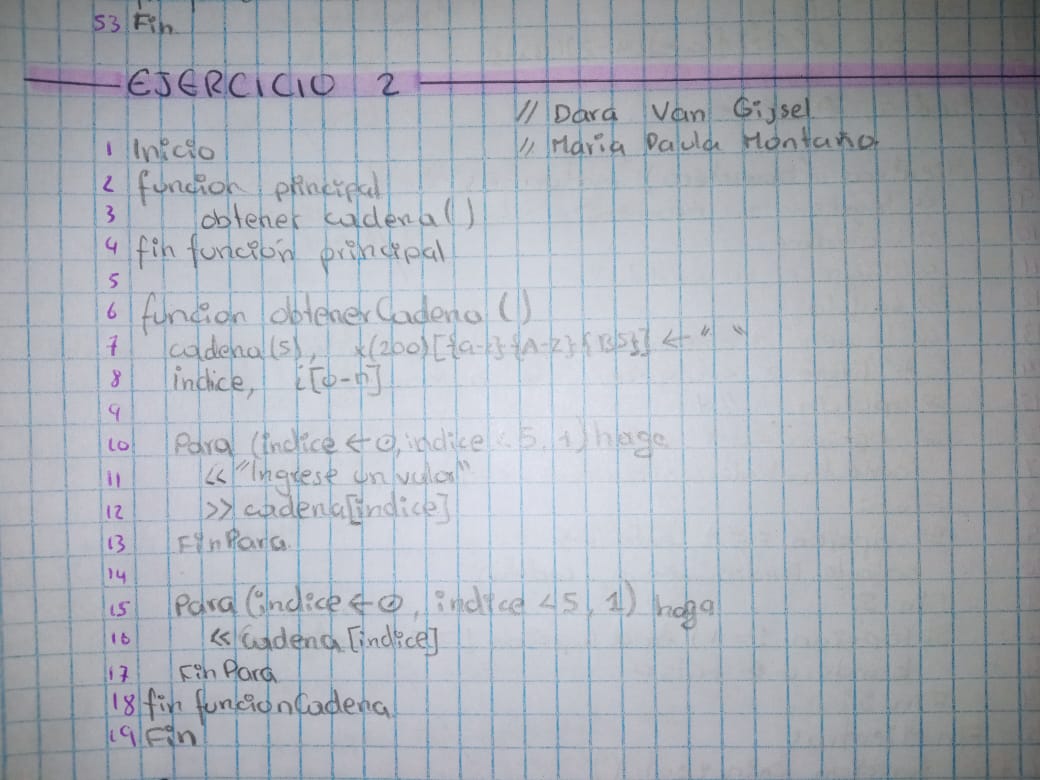 53 Fin
EJERCICIO 2
// Dara Van Gijsel
1 Inicio // Maria Paula Montaño
2 funcion principal
3 obtener cadena()
4 fin función principal
5
6 funcion obtenerCadena ()
7 cadena(5), x(200)[{a-z}{A-Z}{BS}] ← " "
8 indice, i[0-n]
9
10 Para (indice ← 0, indice < 5, 1) haga
11 << "Ingrese un valor"
12 >> cadena[indice]
13 FinPara
14
15 Para (indice ← 0, indice < 5, 1) haga
16 << cadena [indice]
17 Fin Para
18 fin funcionCadena
19 Fin